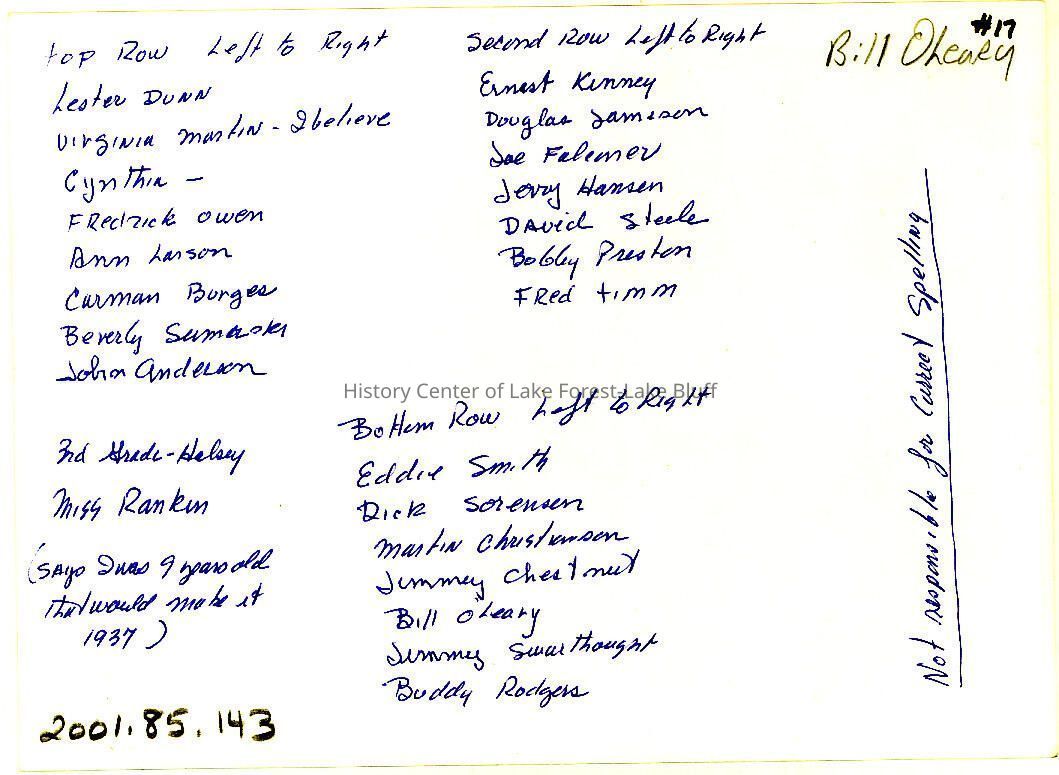 #17
Bill OLeary
top Row Left to Right
Lester Dunn
Virginia Martin - I believe
Cynthia -
Fredrick Owen
Ann Larson
Carman Borges
Beverly
John Anderson
Second Row Left to Right
Ernest Kinney
Douglas Jameson
Joe Falconer
Jerry Hansen
David Steele
Bobby Preston
Fred timm
History Center of Lake Forest-Lake Bluff
Bottem Row Left to Right
Eddie Smith
Dick Sorensen
Martin Christianson
Jimmey Chestnut
Bill O'Leary
Jimmey Swarthought
Buddy Rodgers
3rd Grade-Halsey
Miss Rankin
(says I was 9 years old
that would make it
1937)
Not responsible for Correct Spelling
2001.85.143